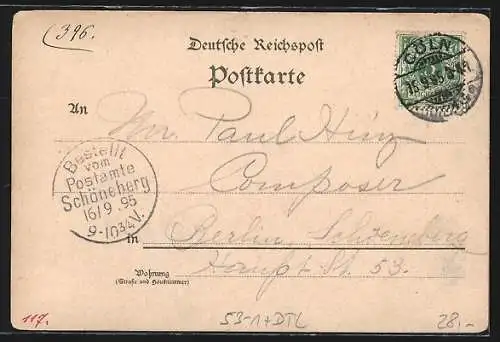 (396.
Deutsche Reichspost
Postkarte
CÖLN
An
Mr. Paul Hinz
Composer
in Berlin, Schöneberg
Haupt St. 53.
Bestellt
vom
Postamte
Schöneberg
16/9.95
9-10 3/4 V.
Wohnung
(Straße und Hausnummer)
117.
53-1+DTL
28,-